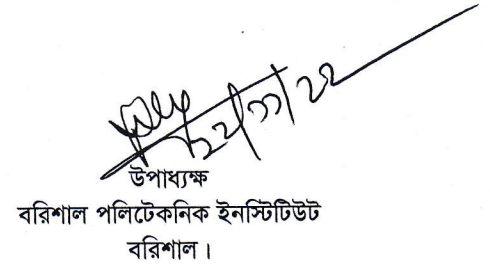 ২২/১১/২২
উপাধ্যক্ষ
বরিশাল পলিটেকনিক ইনস্টিটিউট
বরিশাল।